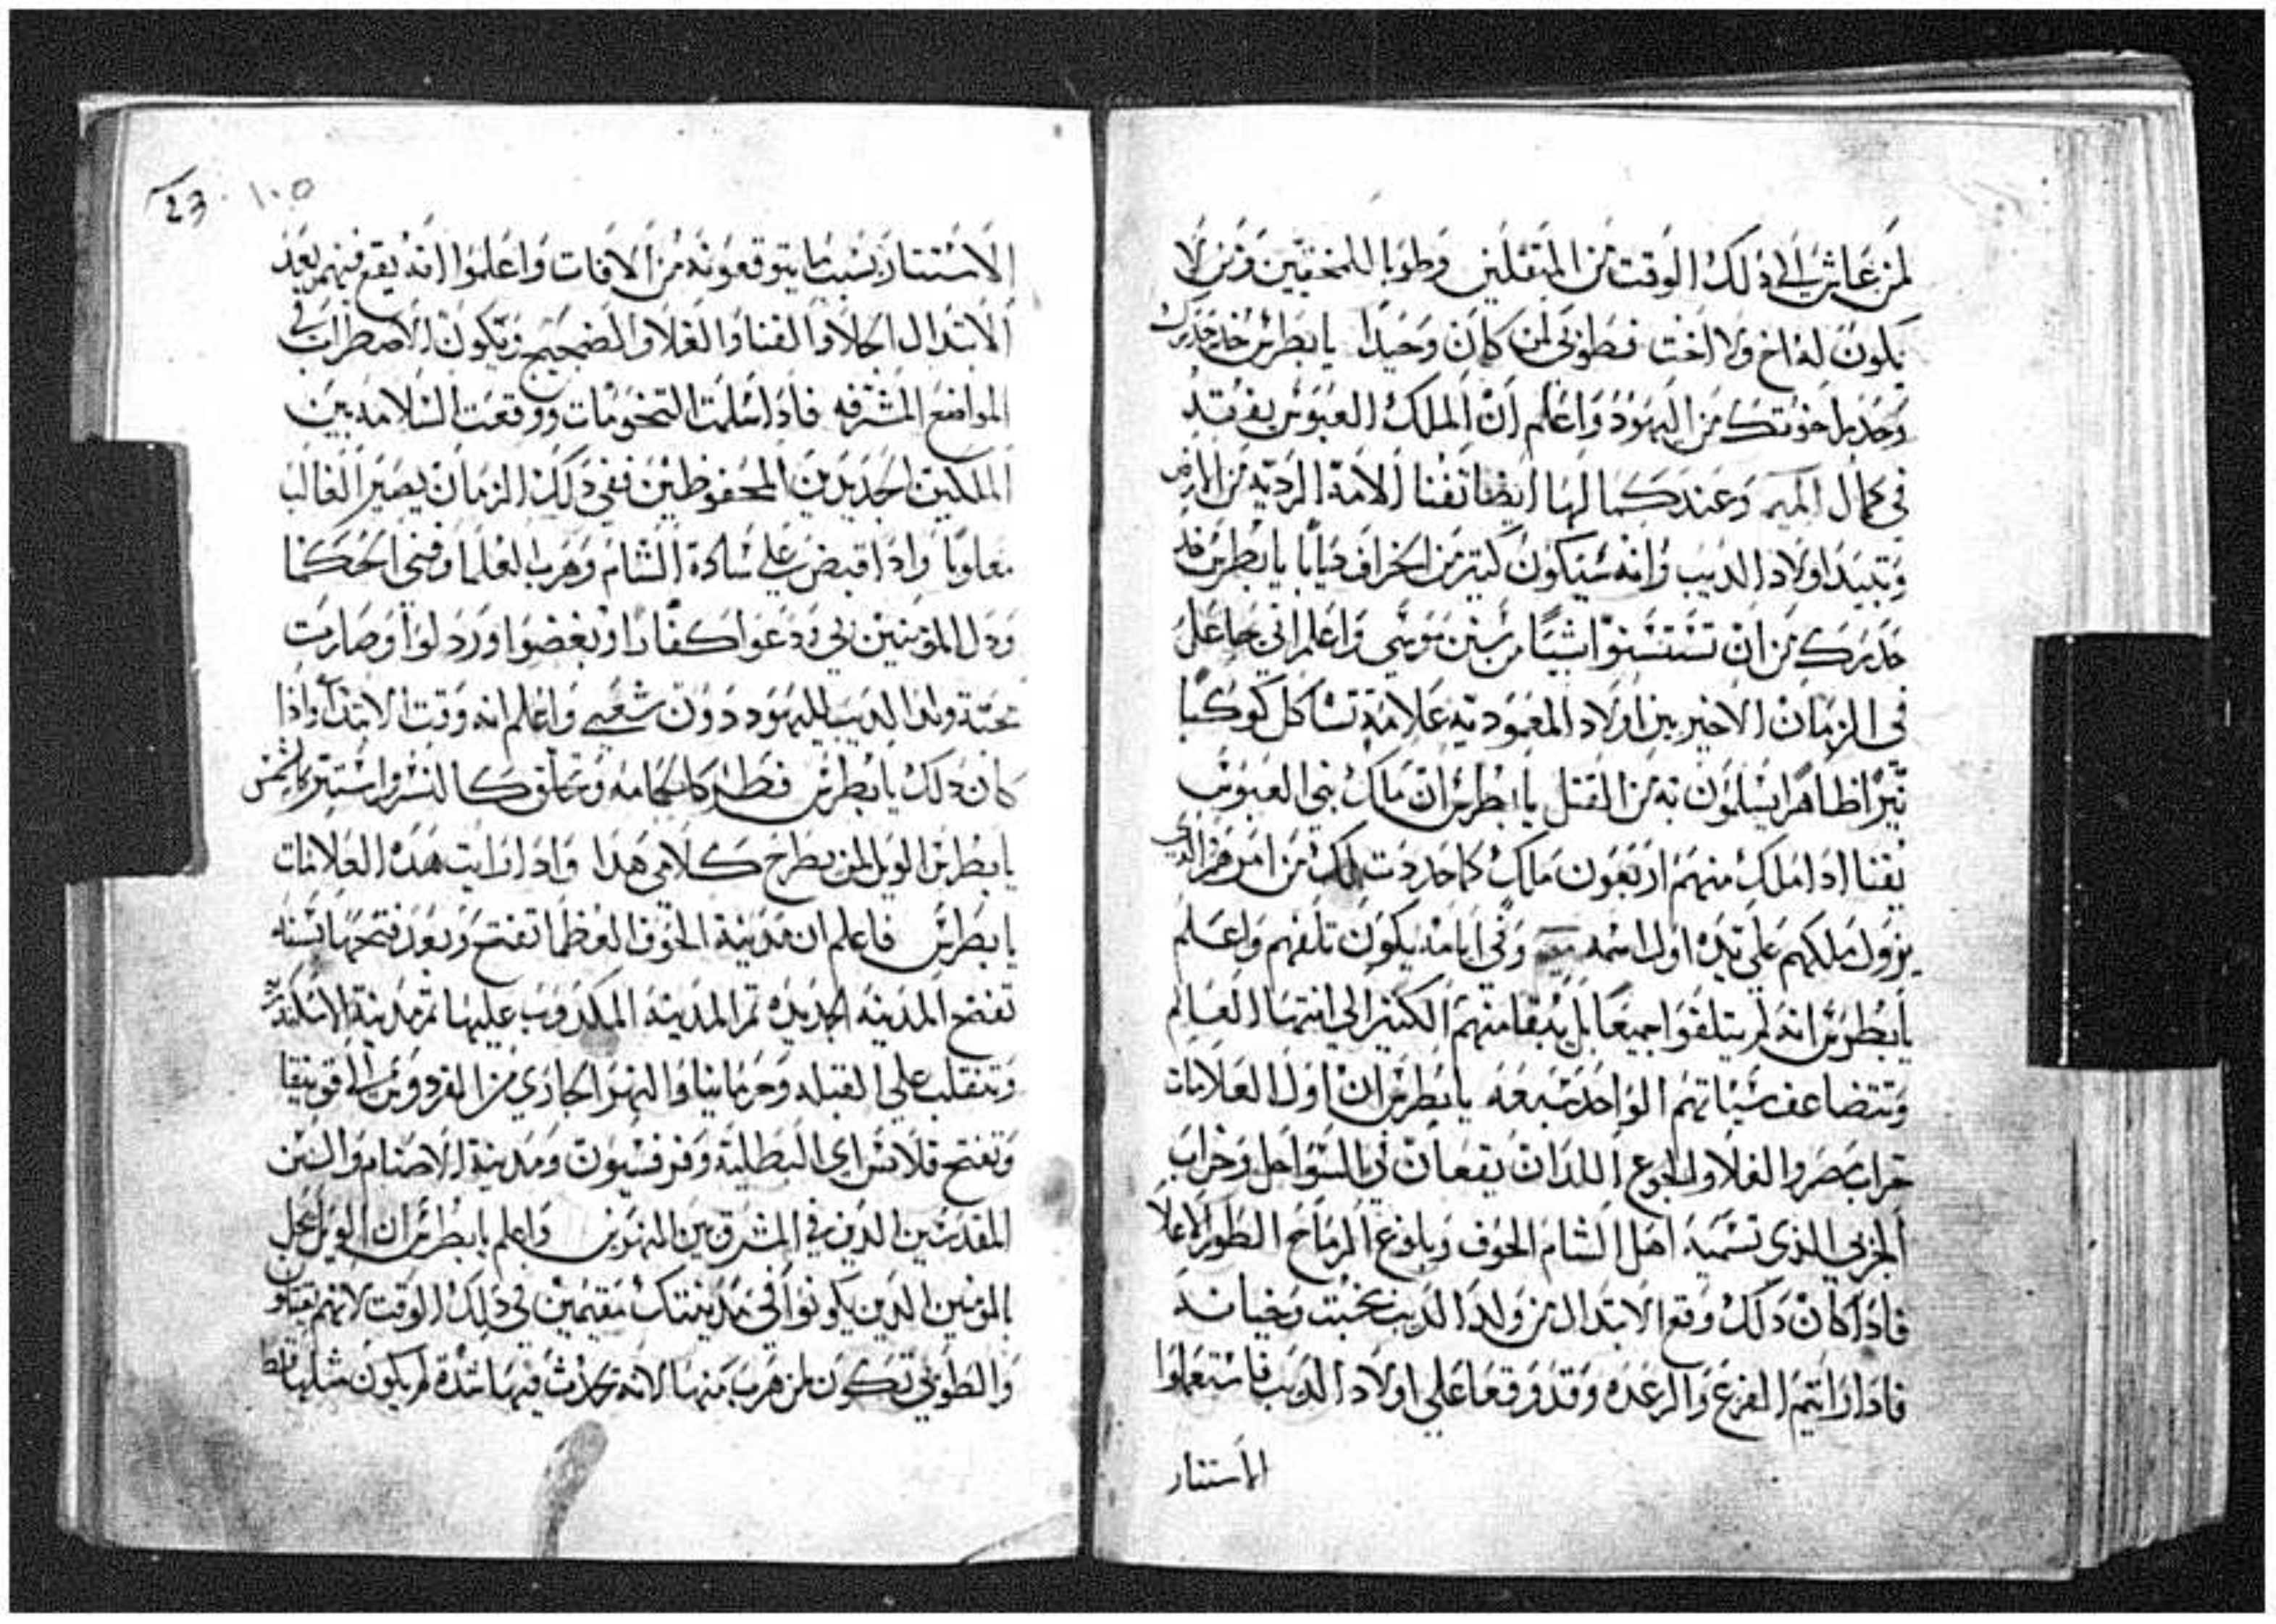 لمن عاش الى ذلك الوقت من المثقلين وطوبا للمخفيين ومن لا
يكون له اخ ولا اخت فطوبى لمن كان وحيدا يا بطرس خد حدرك
وحدر اخوتك من اليهود واعلم ان الملك العبوس يفقد
في كمال الميم وعند كمالها ايضا تفنا الامة الردية من الارض
وتبيد اولاد الديب وانه سيكون كتير من الخراف ديابا يا بطرس خد
حدرك من ان تستسنوا شيا من سنن موسى واعلم اني جاعل
في الزمان الاخير بين اولاد المعمودية علامة تشاكل كوكبا
نيرا ظاهرا يسلمون به من القتل يا بطرس ان ملك بني العبوس
يفنا ادا ملك منهم اربعون ملك كما حددت لك من امر هم الديب
يزول ملكهم على يده اول اسمه وفي ايامه يكون تلفهم واعلم
يا بطرس انه لم يتلفوا جميعا بل يبقا منهم الكتير الى انتها العالم
وتتضاعف سياتهم الواحد سبعه يا بطرس ان اول العلامات
خراب مصر والغلا والجوع اللدان يقعان في السواحل وخراب
الجزبي الذي تسميه اهل الشام الحوف وبلوغ الرماح الطور الاعلا
فادا كان دلك وقع الابتدال من ولد الديب بخبت وخيانه
فادا رايتم الفزع والرعده وقد وقعا على اولاد الديب فاستعملوا
الاستتار
23 ١٠٥
الاستتار بسبب ما يتوقعونه من الافات واعلموا انه يقع فيهم بعد
الابتدال الجلا والفنا والغلا والضجيج ويكون الاضطراب في
المواضع المشرفه فادا سلمت التخومات ووقعت السلامه بين
الملكين الجديدين المحفوظين ففي دلك الزمان يصير الغالب
مغلوبا وادا قبض على سادة الشام وهرب العلما وفني الحكما
ودل المومنين بي ودعوا كفارا وبغضوا وردلوا وصارت
محبة ولد الديب لليهود دون شعبي واعلم انه وقت الابتدا وادا
كان دلك يا بطرس فطير كالحمامه وتحلق كالنسر واستتر بالشمس
يا بطرس الويل لمن يطرح كلامي هدا وادا رايت هده العلامات
يا بطرس فاعلم ان مدينة الخوف العظما تفتح وبعد فتحها بسنه
تفتح المدينه الجديده تم المدينه المكدوب عليها تم مدينة الاسكندريه
وتنقلب على القبله وجرمانيا والنهر الجاري من الفردوس الى قونيقا
وتفتح قلانس اي البطلية وفرفسيون ومدينة الاصنام والسن
المقدسين الدين في المشرق بين النهرين واعلم يا بطرس ان الويل يحل
بالمومنين الدين يكونوا في مدينتك مقيمين في دلك الوقت لانهم يقتلون
والطوبى تكون لمن هرب منها لانه تحدث فيها شدة لم يكون متلها قط